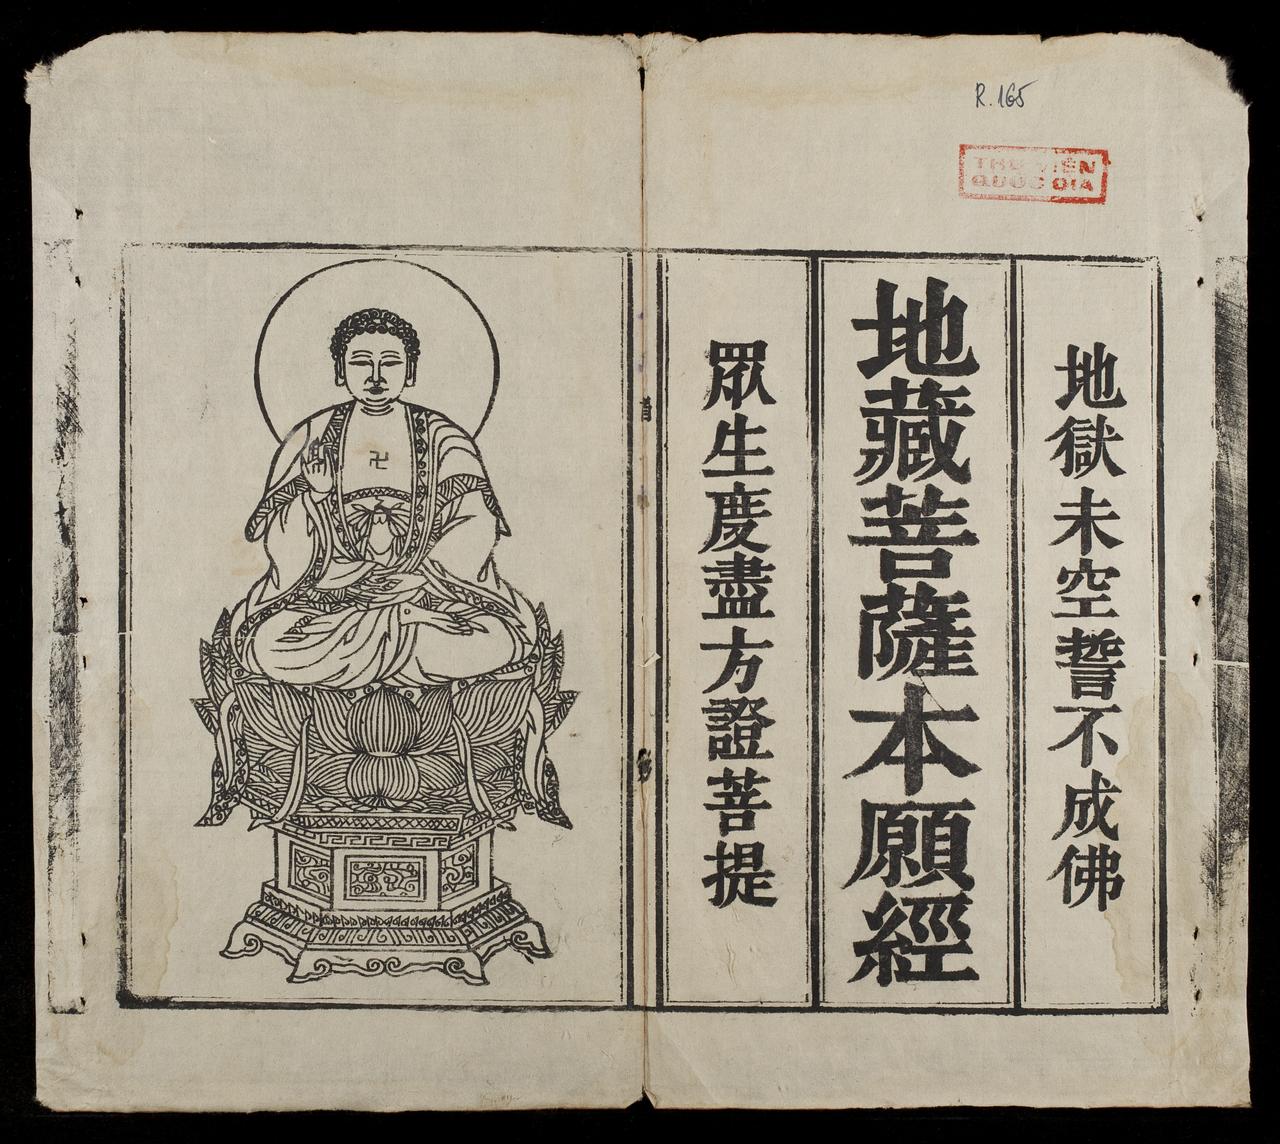 R.165
THƯ VIỆN
QUỐC GIA
地獄未空誓不成佛
地藏菩薩本願經
眾生慶盡方證菩提
卍